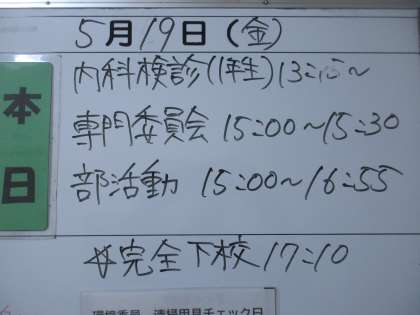 5月19日(金)
本日
内科検診(1年生)13:15~
専門委員会 15:00~15:30
部活動 15:00~16:55
完全下校 17:10
清掃用具チェック日